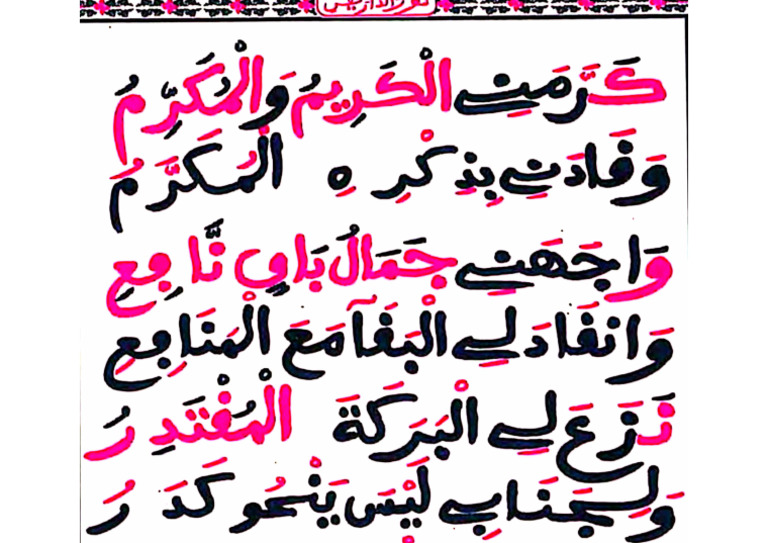 كَرَّمَنِے الْكَرِيمُ وَالْمُكَرِّمُ
وَفَادَنِے بِذِكْرِهِ الْمُكَرَّمُ
وَاجَهَنِے جَمَالُ بَاقٍ نَّافِعِ
وَانفَادَ لِے الْبَفَآ مَعَ الْمَنَافِعِ
نَزَعَ لِے الْبَرَكَةَ الْمُفْتَدِرُ
وَلِجَنَابِے لَيْسَ يَنْحُو كَدَرُ